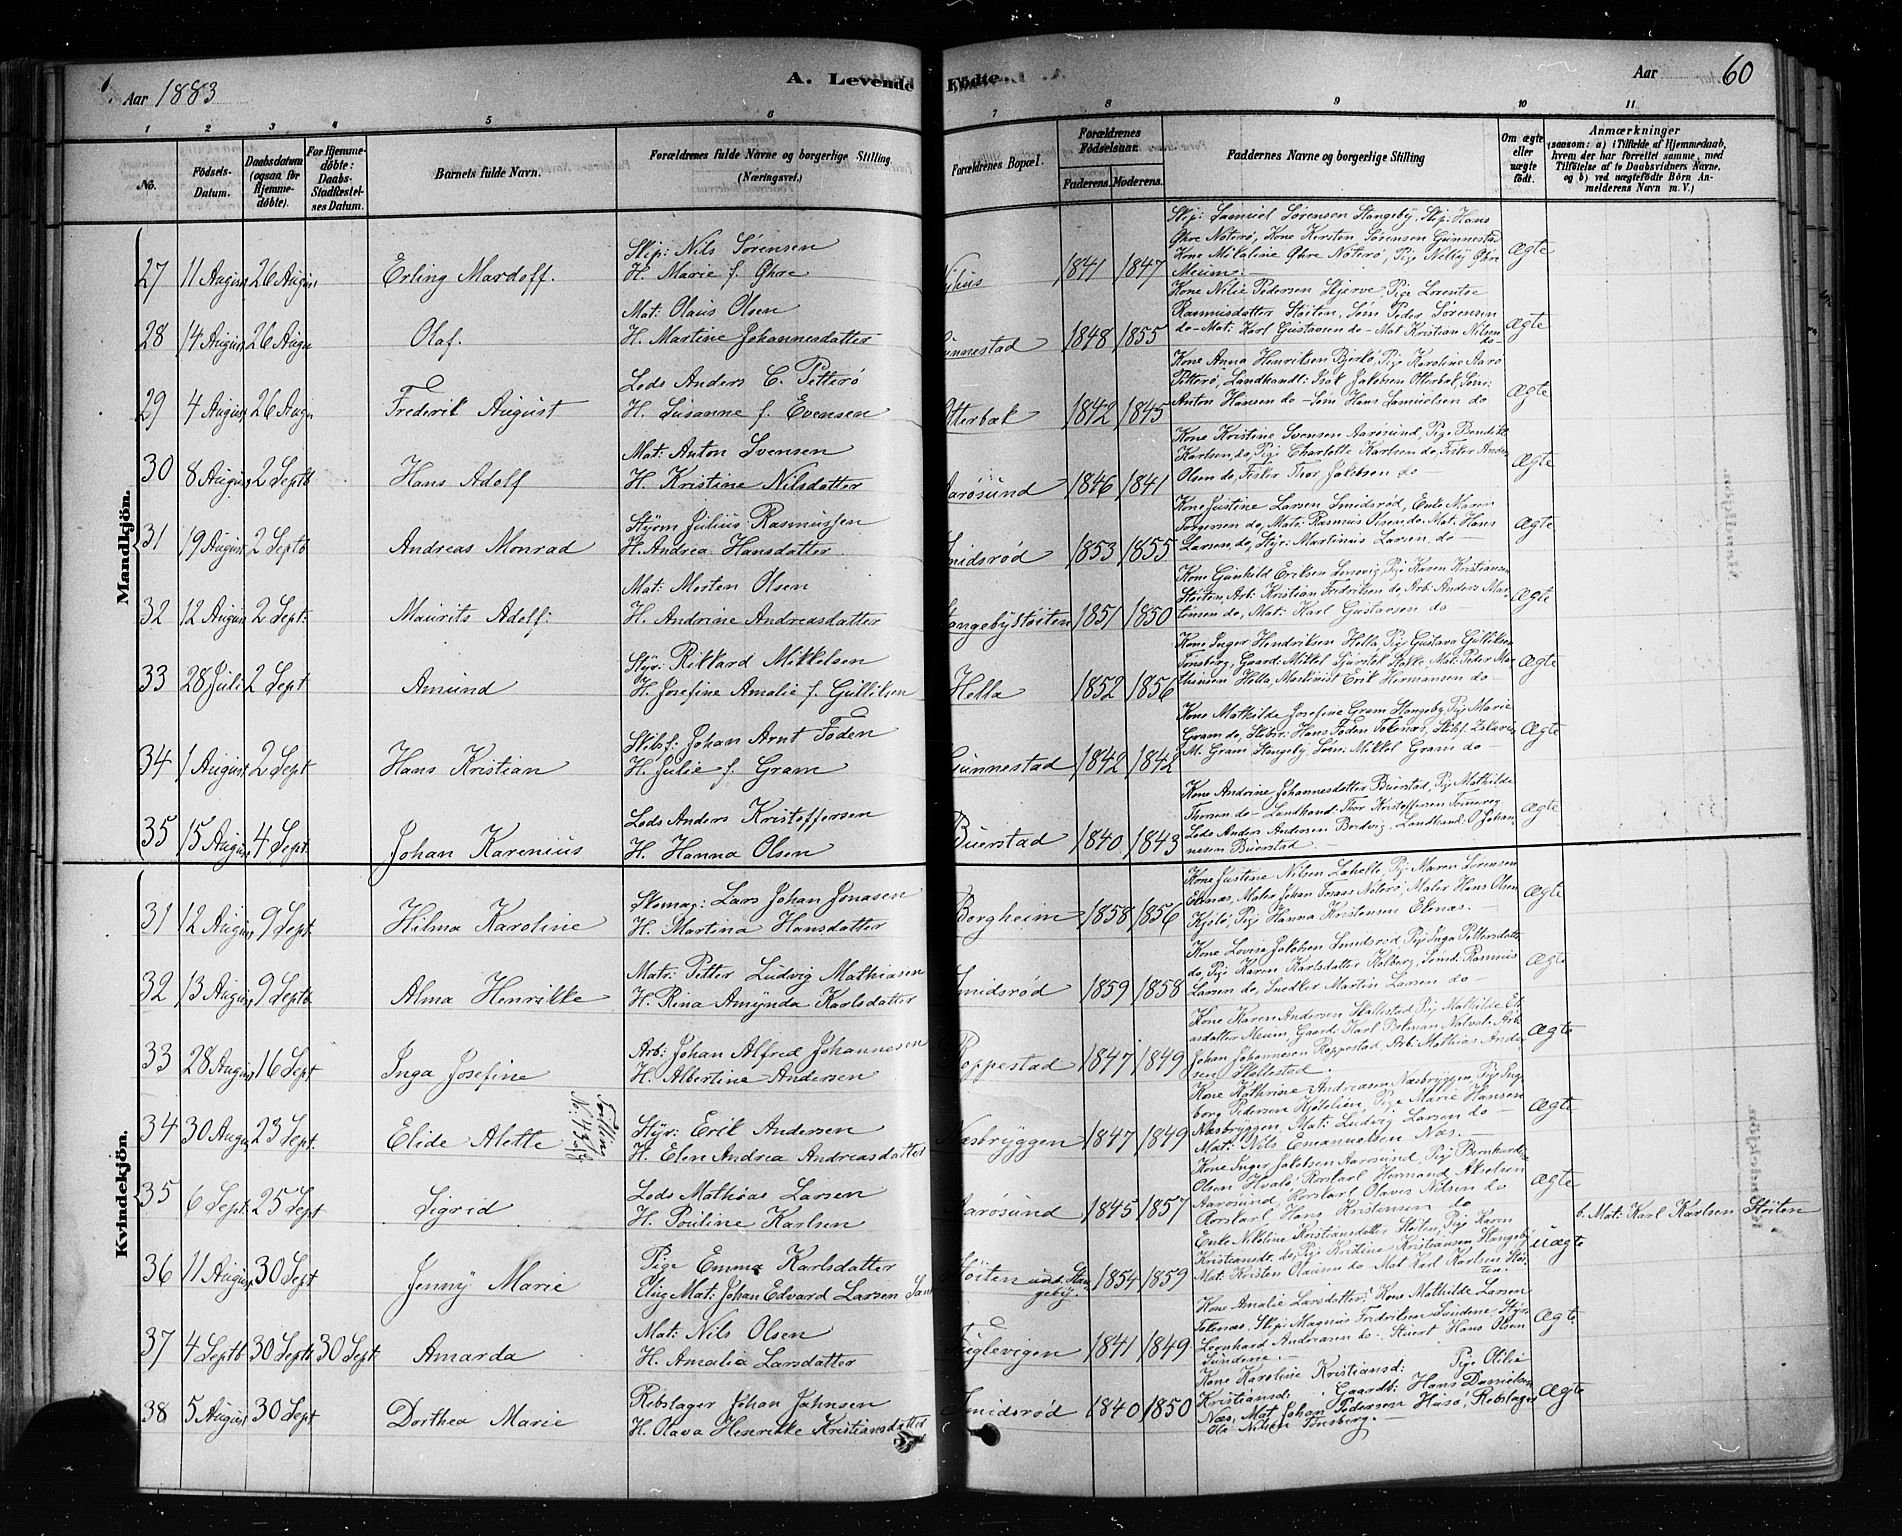 Aar 1883
A. Levende Fødte.
Aar 60
1 2 3 4 5 6 7 8 9 10 11
No.
Fødsels-Datum.
Daabsdatum (ogsaa før Hjemme-døbte).
For Hjemme-døbte: Daabs-Stadfæstel-ses Datum.
Barnets fulde Navn.
Forældrenes fulde Navne og borgerlige Stilling. (Næringsvei.)
Forældrenes Bopæl.
Forældrenes Fødselsaar.
Faderens. Moderens.
Faddernes Navne og borgerlige Stilling
Om ægte eller uægte født.
Anmærkninger
(saasom: a) i Tilfælde af Hjemmedaab, hvem der har forrettet samme, med Tilføielse af to Daabsvidners Navne, og b) ved uægtefødte Børn An-melderens Navn m. V.)
Mandkjön.
27 11 August 26 August Erling Mardoff. Skip: Nils Sørensen
H. Marie f. Øhre
1841 1847 Skip: Samuel Sørensen Stangeby, Skip: Hans
Øhre Nøterø, Kone Kirsten Sørensen Gunnestad
Kone Mikaline Øhre Nøterø, Pige Øhre
Meum. Ægte
28 14 August 26 Augu Olaf. Mat: Olaus Olsen
H. Martine Johannesdatter
Gunnestad 1848 1855 Kone Nilie Pedersen Skjerve, Pige Lorentse
Rasmusdatter Støiten, Søm Peder Sørensen
do- Mat: Karl Gustavsen do- Mat Kristian Nilsen
do- Ægte
29 4 August 26 Augu Frederik August Lods Anders C. Petterø
H. Susanne f. Evensen
Otterbæk 1842 1845 Kone Anna Henriksen Bjerkø, Pige Karoline Aarø
Petterø, Landhandl: Isak Jakobsen Otterbæk, Søm:
Anton Hansen do- Søm Hans Samuelsen do Ægte
30 8 August 2 Septb Hans Adolf Mat: Anton Svensen
H. Kristine Nilsdatter
Aarøsund 1846 1841 Kone Kristine Svensen Aarøsund, Pige Bendikte
Karlsen do, Pige Charlotte Karlsen do, Fisker Anders
Olsen do, Fisker Thor Jakobsen do- Ægte
31 19 August 2 Septb Andreas Monrad Styrm Julius Rasmussen
H. Andrea Hansdatter
Smidsrød 1853 1855 Kone Justine Larsen Smidsrød, Enke Maren
Torgersen do, Mat: Rasmus Olsen do- Mat: Hans
Larsen do, Styr: Martinius Larsen do- Ægte
32 12 August 2 Sept. Maurits Adolf: Mat: Morten Olsen
H. Andrine Andreasdatter
Stangebystøiten 1851 1850 Kone Gunhild Eriksen, Pige Karen Kristiansen
Støiten, Arb: Kristian Fredriksen do, Arb: Anders Mar-
tinsen do, Mat: Karl Gustavsen do- Ægte
33 28 Juli 2 Sept Amund Styr: Rikkard Mikkelsen
H. Josefine Amalie f. Gulliksen
Hella 1852 1856 Kone Inger Hendriksen Hella, Pige Gustava Gulliksen
Tønsberg, Gaard: Mikkel Stokke, Mat: Peder Mar-
thinsen Hella, Maskinist Erik Hermansen do- Ægte
34 1 August 2 Sept Hans Kristian Skibsf: Johan Arnt Foden
H. Julie f. Gram
Gunnestad 1842 1842 Kone Mathilde Josefine Gram Stangeby, Pige Marie
Gram do, Skibsr: Hans Foden Tokenæs, Skibsf. Zakarias
M. Gram Stangeby, Søm: Mikkel Gram do- Ægte
35 15 August 4 Sept. Johan Karenius Lods Anders Kristoffersen
H. Hanna Olsen
Buerstad 1840 1843 Kone Andrine Johannesdatter Buerstad, Pige Mathilde
Thorsen do- Landhand: Thor Kristoffersen
Lods Anders Andersen Bordvig, Landhand: O. Johan-
nesen Buerstad. Ægte
Kvindekjön.
31 12 August 9 Sept. Hilma Karoline Skomag: Lars Johan Jonasen
H. Martina Hansdatter
Borgheim 1858 1856 Kone Justine Nilsen Lahelle, Pige Maren Sørensen
Ekenæs, Maler Johan Nøterø, Maler Hans Olsen
Kjøle, Pige Hanna Kristensen Ekenæs. Ægte
32 13 August 9 Septb Alma Henrikke Matr: Petter Ludvig Mathiasen
H. Rina Amynda Karlsdatter
Smidsrød 1859 1858 Kone Lovise Jakobsen Smidsrød, Pige Inga Pettersdatter
do, Pige Karen Karlsdatter Kolberg, Smed: Rasmus
Larsen do, Snedker Martin Larsen do Ægte
33 28 August 16 Sept Inga Josefine Arb: Johan Alfred Johannesen
H. Albertine Andersen
Roppestad 1847 1849 Kone Karen Andersen Skallestad, Pige Mathilde
Meum, Gaard: Karl Bekman Arb:
Johan Johannesen Roppestad, Arb: Mathias Ander-
sen Skallestad. Ægte
34 30 Augu 23 Sept. Elide Alette Tvilling
Styr: Erik Andersen
H. Elen Andrea Andreasdatter
Næsbryggen 1847 1849 Kone Kathrine Andreasen Næsbryggen, Pige Inge-
borg Pedersen, Pige Marie Hansen
Næsbryggen, Mat: Ludvig Larsen do-
Mat: Nils Emanuelsen Næs. Ægte
35 6 Sept. 25 Sept Sigrid Lods Mathias Larsen
H. Pouline Karlsen
Aarøsund 1845 1857 Kone Inger Jakobsen Aarøsund, Pige Bernhardine
Olsen Hvalø, Rorskarl Hermand Akselsen
Aarøsund, Rorskarl Olaves Nilsen do
Rorskarl Hans Kristensen do Ægte
36 11 August 30 Sept Jenny Marie Pige Emma Karlsdatter
Mat: Johan Edvard Larsen
Støiten und: Stan-
geby. 1854 1859 Enke Nikoline Kristiansdatter Støiten, Pige Karen
Kristiansdt. do, Pige Kristine Kristiansen Stangeby
Mat: Kristen Olausen do Mat Karl Karlsen Støi-
ten. Uægte b. Mat: Karl Karlsen Støiten
37 4 Septb 30 Septb 30 Sept Amanda Mat: Nils Olsen
H. Amalia Larsdatter
Fuglevigen 1841 1849 Kone Amalie Larsdatter, Kone Mathilde Larsen
Tokenæs, Skip: Magnus Fredriksen Sundene, Styr:
Leonhard Andreasen do- Stuert Hans Olsen
Sundene. Ægte
38 5 August 30 Sept Dorthea Marie Rebslager Johan Johnsen
H. Olava Henrikke Kristiansdatter
Smidsrød 1840 1850 Kone Karoline Kristiansd: Pige Otilie
Kristiansd: Gaardb: Hans Danielsen
Næs, Mat Johan Pedersen Husø, Rebslager
Nilsen Tønsberg. Ægte